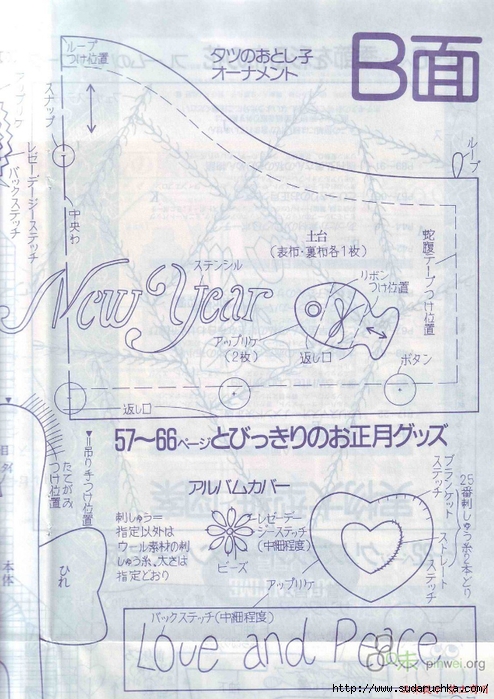 B面
タツのおとし子
オーナメント
ループ
つけ位置
スナップ
ループ
アップリケ
レゼーデージーステッチ
バックステッチ
中央わ
土台
(表布・裏布各1枚)
蛇腹テープつけ位置
ステンシル
New Year
リボン
つけ位置
アップリケ
(2枚)
返し口
ボタン
返し口
57〜66ページとびっきりのお正月グッズ
▼=吊り手つけ位置
たてがみ
つけ位置
アルバムカバー
刺しゅう=
指定以外は
ウール素材の刺
しゅう糸、太さは
指定どおり
レゼーデー
ジーステッチ
(中細程度)
ビーズ
アップリケ
ブランケット
ステッチ
ストレート
ステッチ
25番刺しゅう糸2本どり
本体
ひれ
バックステッチ(中細程度)
Love and Peace
pinwei.org
http://www.sudaruchka.com/